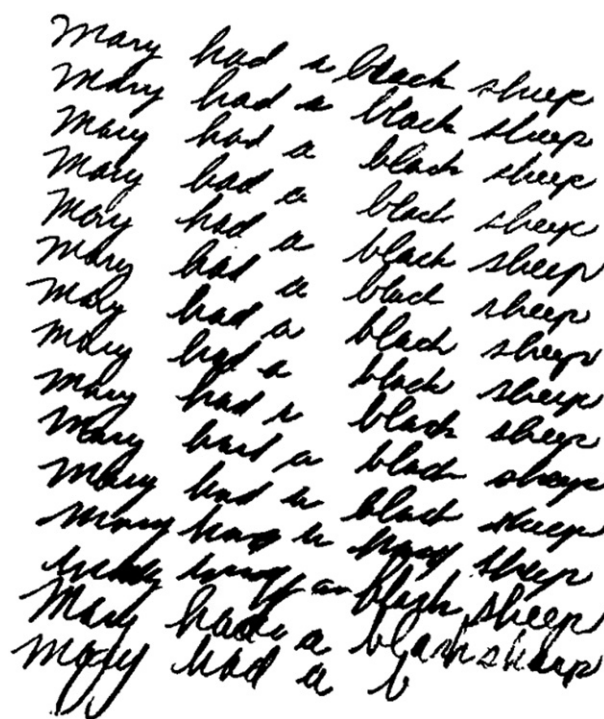 Mary had a black sheep
Mary had a black sheep
Mary had a black sheep
Mary had a black sheep
Mary had a black sheep
Mary had a black sheep
Mary had a black sheep
Mary had a black sheep
Mary had a black sheep
Mary had a black sheep
Mary had a black sheep
Mary had a sheep
black sheep
Mary had a black sheep
Mary had a b